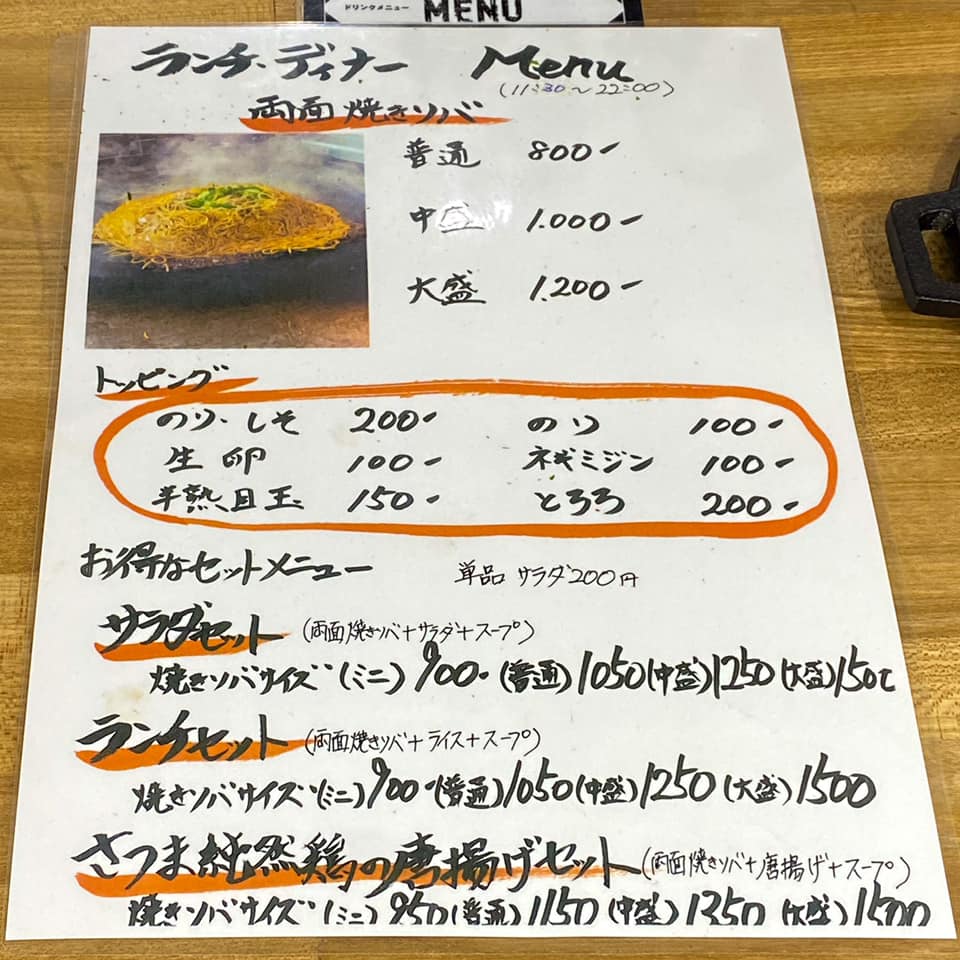 ドリンクメニュー MENU
ランチ・ディナー Menu
(11:30~22:00)
両面焼きソバ
普通 800-
中盛 1.000-
大盛 1.200-
トッピング
のり・しそ 200- のり 100-
生卵 100- ネギミジン 100-
半熟目玉 150- とろろ 200-
お得なセットメニュー 単品 サラダ200円
サラダセット (両面焼きソバ+サラダ+スープ)
焼きソバサイズ (ミニ) 900- (普通) 1050 (中盛) 1250 (大盛) 150
ランチセット (両面焼きソバ+ライス+スープ)
焼きソバサイズ (ミニ) 900- (普通) 1050 (中盛) 1250 (大盛) 1500
さつま純然鶏の唐揚げセット (両面焼きソバ+唐揚げ+スープ)
焼きソバサイズ (ミニ) 950 (普通) 1150 (中盛) 1350 (大盛) 1500